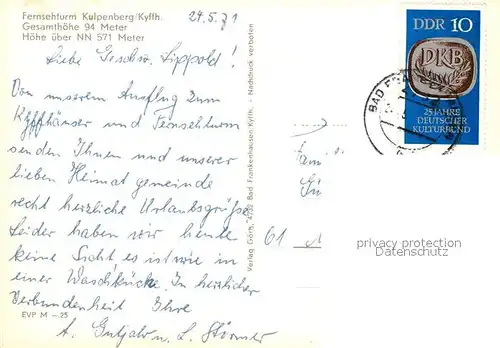 Fernsehturm Kulpenberg/Kyffh.
Gesamthöhe 94 Meter
Höhe über NN 571 Meter
24.5.71
Liebe Geschw. Lippold!
Von unserem Ausflug zum
Kyffhäuser und Fernsehturm
senden Ihnen und unserer
lieben Heimat gemeinde
recht herzliche Urlaubsgrüße
Leider haben wir heute
keine Sicht es ist wie in
einer Waschküche. In herzlicher
Verbundenheit Ihre
A. Gutjahr u. L. Störmer
EVP M -.25
Verlag Görtz, 4732 Bad Frankenhausen Kyffh. - Nachdruck verboten
DDR 10
DKB
25 JAHRE
DEUTSCHER
KULTURBUND
BAD
Famil
61
privacy protection
Datenschutz